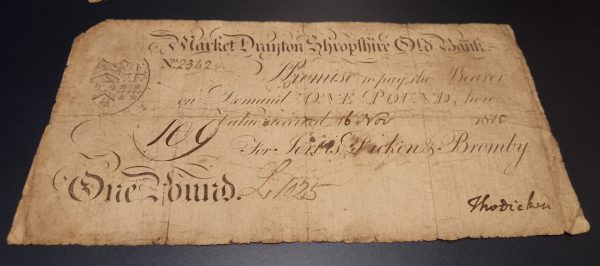 Market Drayton Shropshire Old Bank
No. 2342 I Promise to pay the Bearer
on Demand ONE POUND, here
Value received 16 Nov 1810
109 For Dicken & Bromby
One Pound.
Tho Dicken